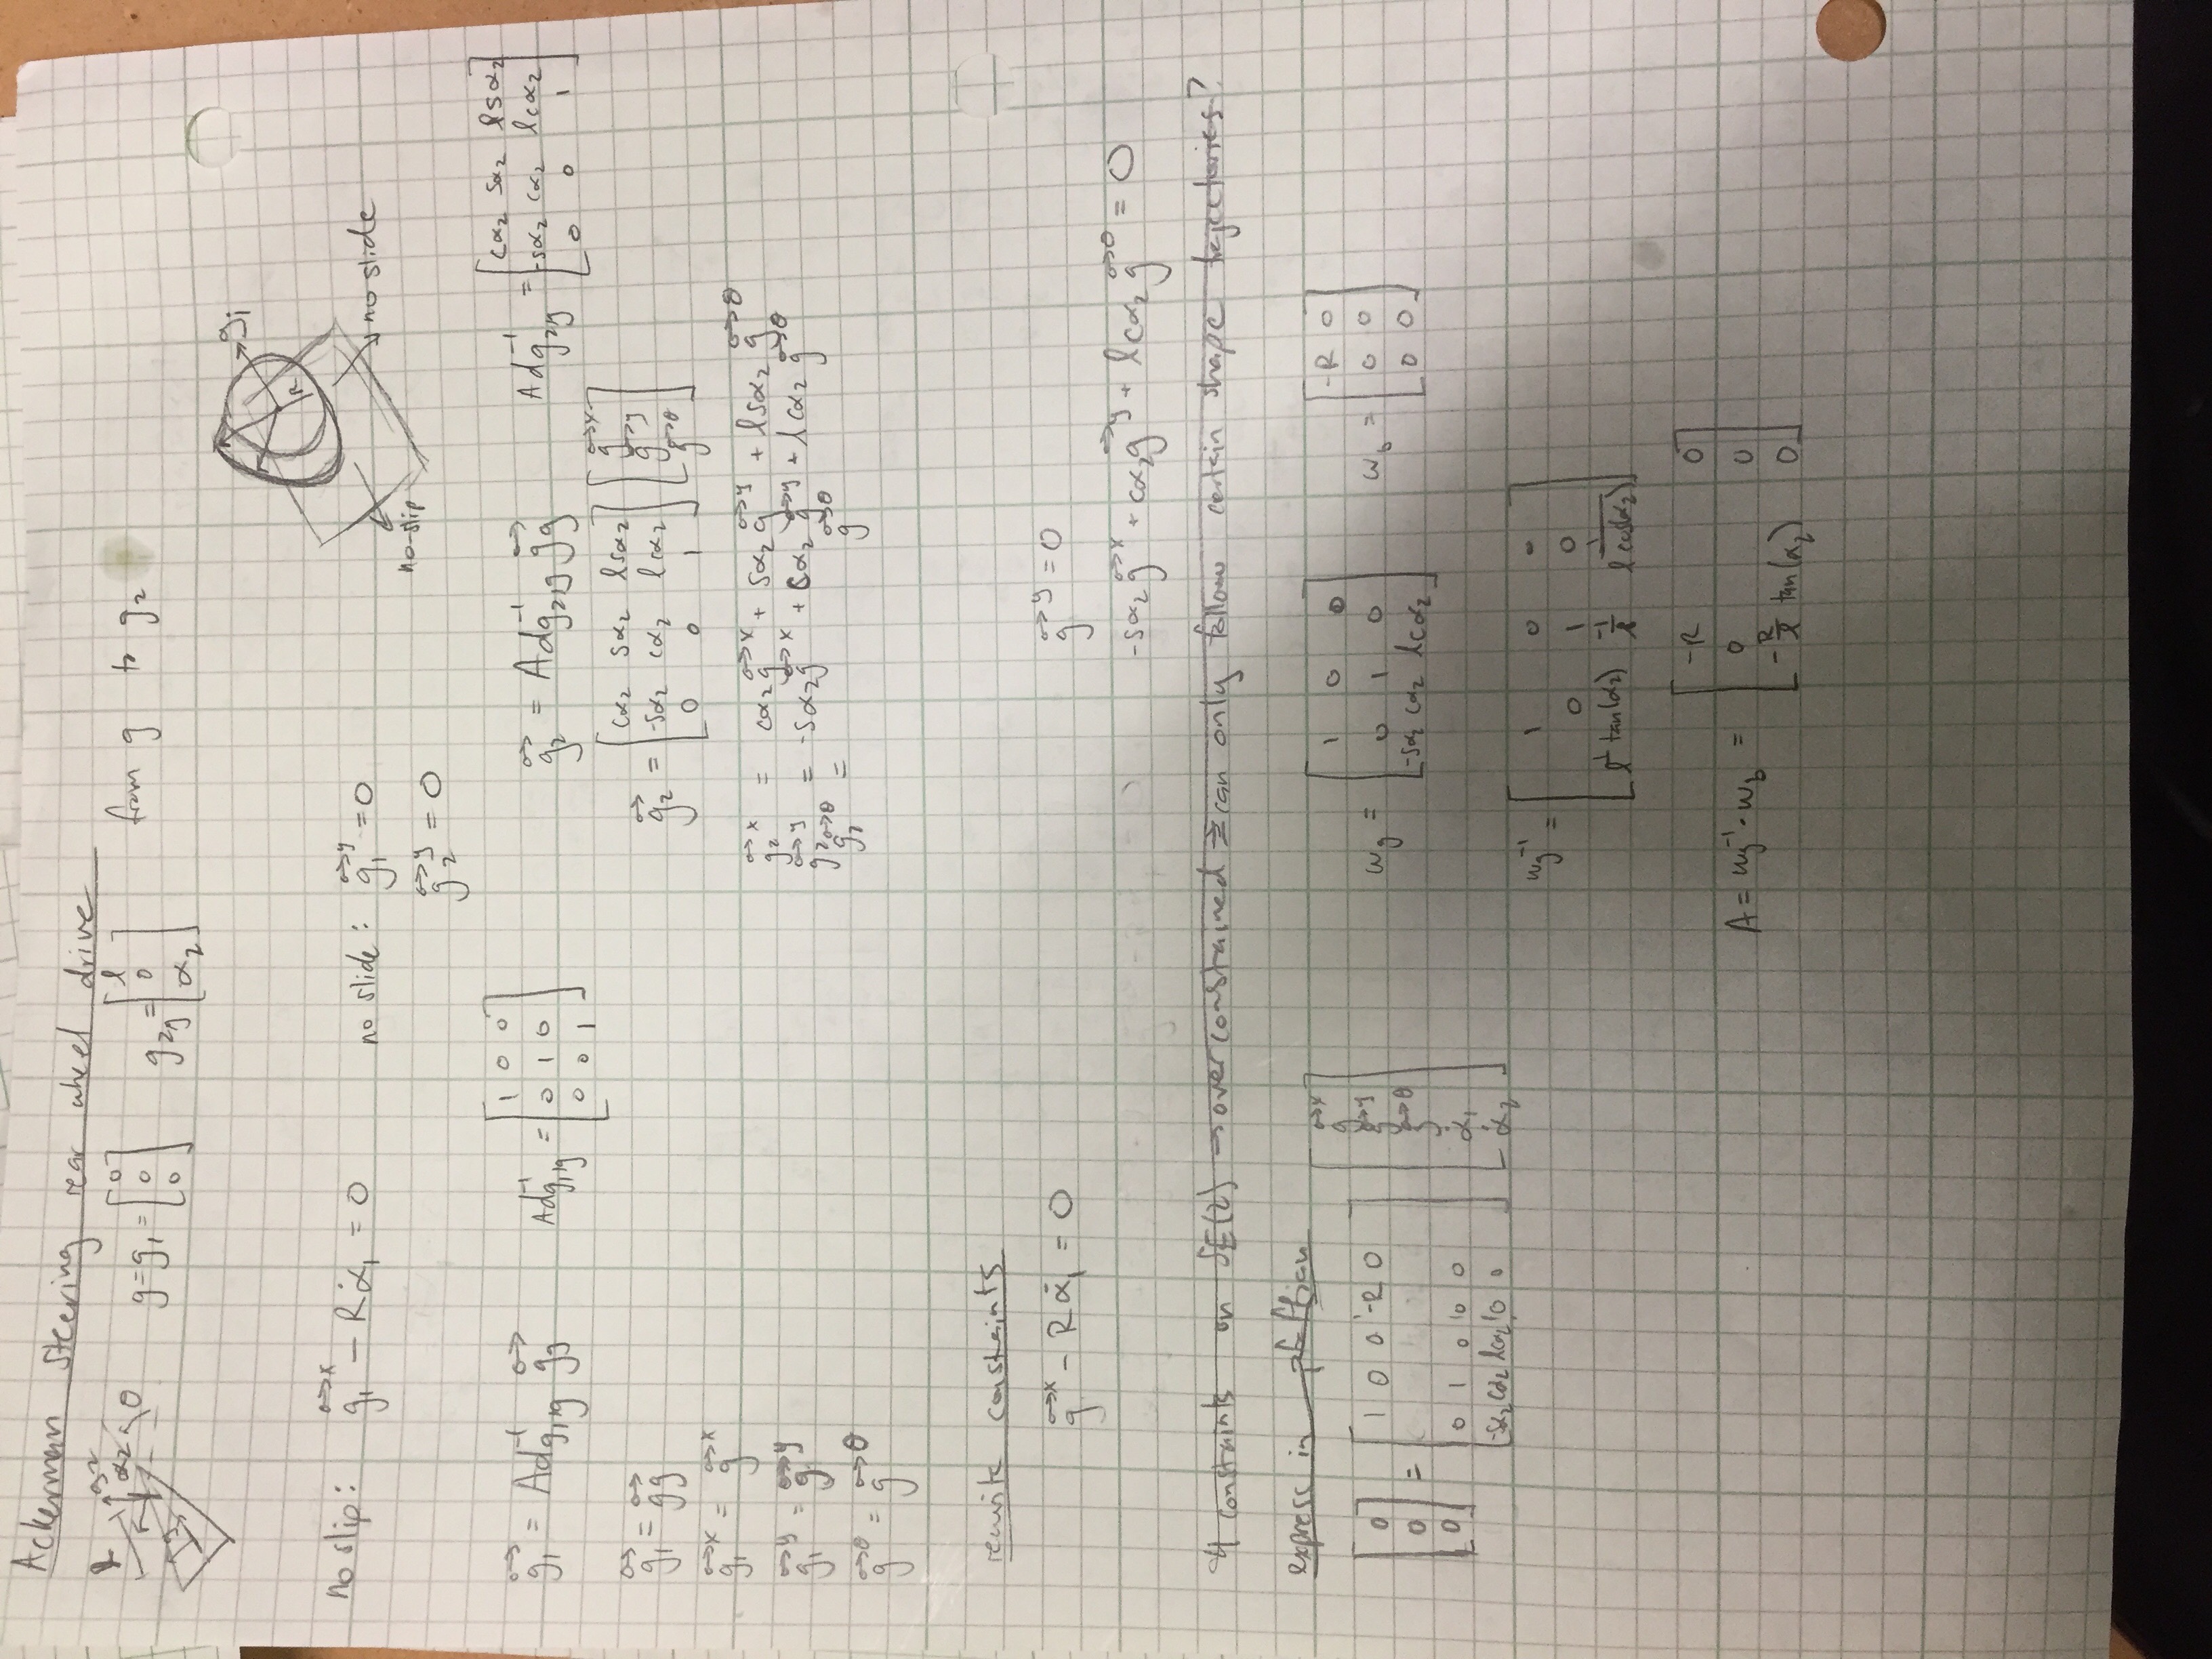 Ackerman steering rear wheel drive
l g2 α2 θ g
g=g₁=[0 0 0] g₂,g=[l 0 α₂] from g to g₂
gi
R
no slip: g⃗₁ˣ − Rα̇₁ = 0 no slide: g⃗₁ʸ = 0
no slide
no-slip
g⃗₂ʸ = 0
g⃗₁ = Ad⁻¹g₁,g g⃗g Ad⁻¹g₁,g = [1 0 0; 0 1 0; 0 0 1] g⃗₂ = Ad⁻¹g₂,g g⃗g Ad⁻¹g₂,g = [cα₂ sα₂ lsα₂; -sα₂ cα₂ lcα₂; 0 0 1]
g⃗₁ = g⃗g g⃗₂ = [cα₂ sα₂ lsα₂; -sα₂ cα₂ lcα₂; 0 0 1] [g⃗ˣ; g⃗ʸ; g⃗θ]
g⃗₁ˣ = g⃗ˣ
g⃗₂ˣ = cα₂g⃗ˣ + sα₂g⃗ʸ + lsα₂ g⃗θ
g⃗₁ʸ = g⃗ʸ
g⃗₂ʸ = -sα₂g⃗ˣ + cα₂g⃗ʸ + lcα₂ g⃗θ
g⃗₂θ = g⃗θ
g⃗θ = g⃗θ
rewrite constraints
g⃗ˣ − Rα̇₁ = 0 g⃗ʸ = 0
-sα₂g⃗ˣ + cα₂g⃗ʸ + lcα₂ g⃗θ = 0
4 constraints on SE(2) → overconstrained → can only follow certain shape trajectories?
express in pfaffian
[0; 0; 0] = [1 0 0 -R 0; 0 1 0 0 0; -sα₂ cα₂ lcα₂ 0 0] [g⃗ˣ; g⃗ʸ; g⃗θ; α̇₁; α̇₂]
ωg = [1 0 0; 0 1 0; -sα₂ cα₂ lcα₂] ωb = [-R 0; 0 0; 0 0]
ωg⁻¹ = [1 0 0; 0 1 0; l⁻¹ tan(α₂) -1/l 1/(l cos(α₂))]
A = ωg⁻¹·ωb = [-R 0; 0 0; -R/l tan(α₂) 0]